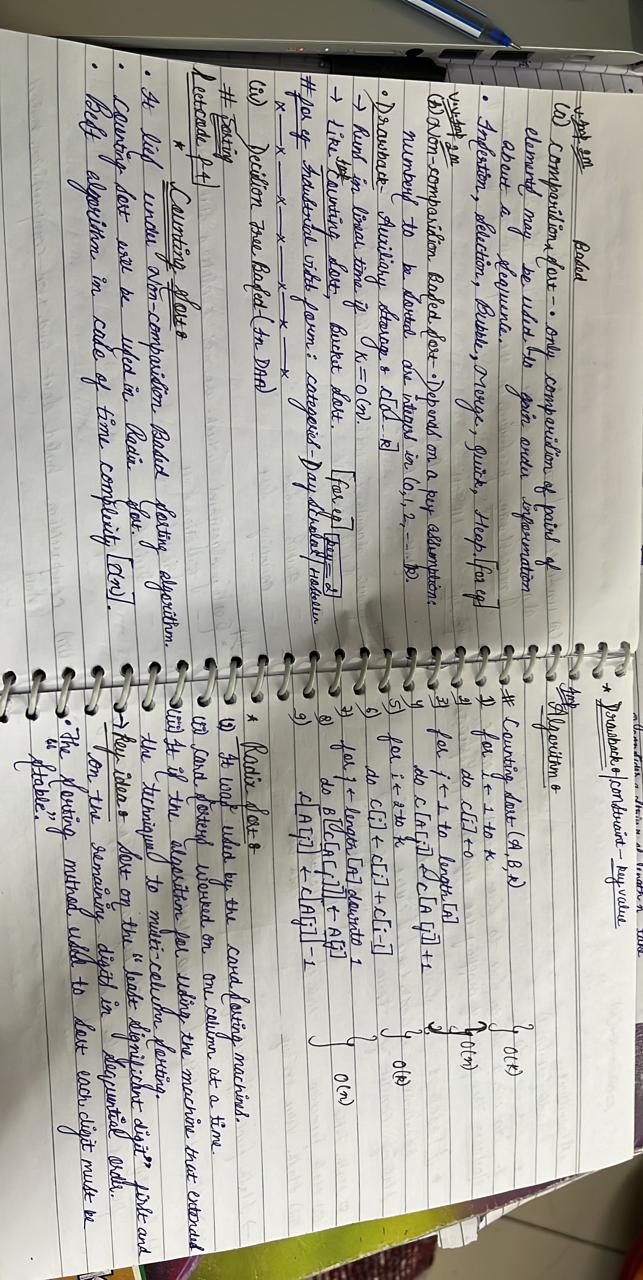 v.imp 2m Based
(a) comparison sort - • only comparison of pairs of
elements may be used to gain order information
about a sequence.
• Insertion, Selection, Bubble, Merge, quick, Heap. [for eg]
v.v.imp 2m
(b) Non-comparison Based sort - • Depends on a key assumption:
numbers to be sorted are integers in {0, 1, 2, --- k}.
• Drawback Auxiliary storage & c[0 - k]
→ Runs in linear time if k = O(n).
→ Like Counting sort, Bucket sort. [for eg] [key = 2]
# for eg Industrial visit form: categories - Day scholar/Hosteller
x — x — x — x — x — x — x —
(iv) Decision Tree Based - (In DAA)
# Sorting
Leetcode
* Counting sort :
• It lies under Non-comparison Based sorting algorithm.
• Counting sort will be used in Radix sort.
• Best algorithm in case of time complexity [O(n)].
* Drawback : / constraint - key value
imp Algorithm :
# Counting Sort (A, B, k)
1) for i ← 1 to k
2) do C[i] ← 0 } O(k)
3) for j ← 1 to length[A]
4) do C[A[j]] ← C[A[j]] + 1 } O(n)
5) for i ← 2 to k
6) do C[i] ← C[i] + C[i-1] } O(k)
7) for j ← length[A] down to 1
8) do B[C[A[j]]] ← A[j]
9) C[A[j]] ← C[A[j]] - 1 } O(n)
* Radix Sort :
(i) It was used by the card sorting machines.
(ii) Card sorters worked on one column at a time.
(iii) It is the algorithm for using the machine that extended
the technique to multi-column sorting.
→ Key idea : Sort on the "least significant digit" first and
on the remaining digits in sequential order.
• The sorting method used to sort each digit must be
"stable".